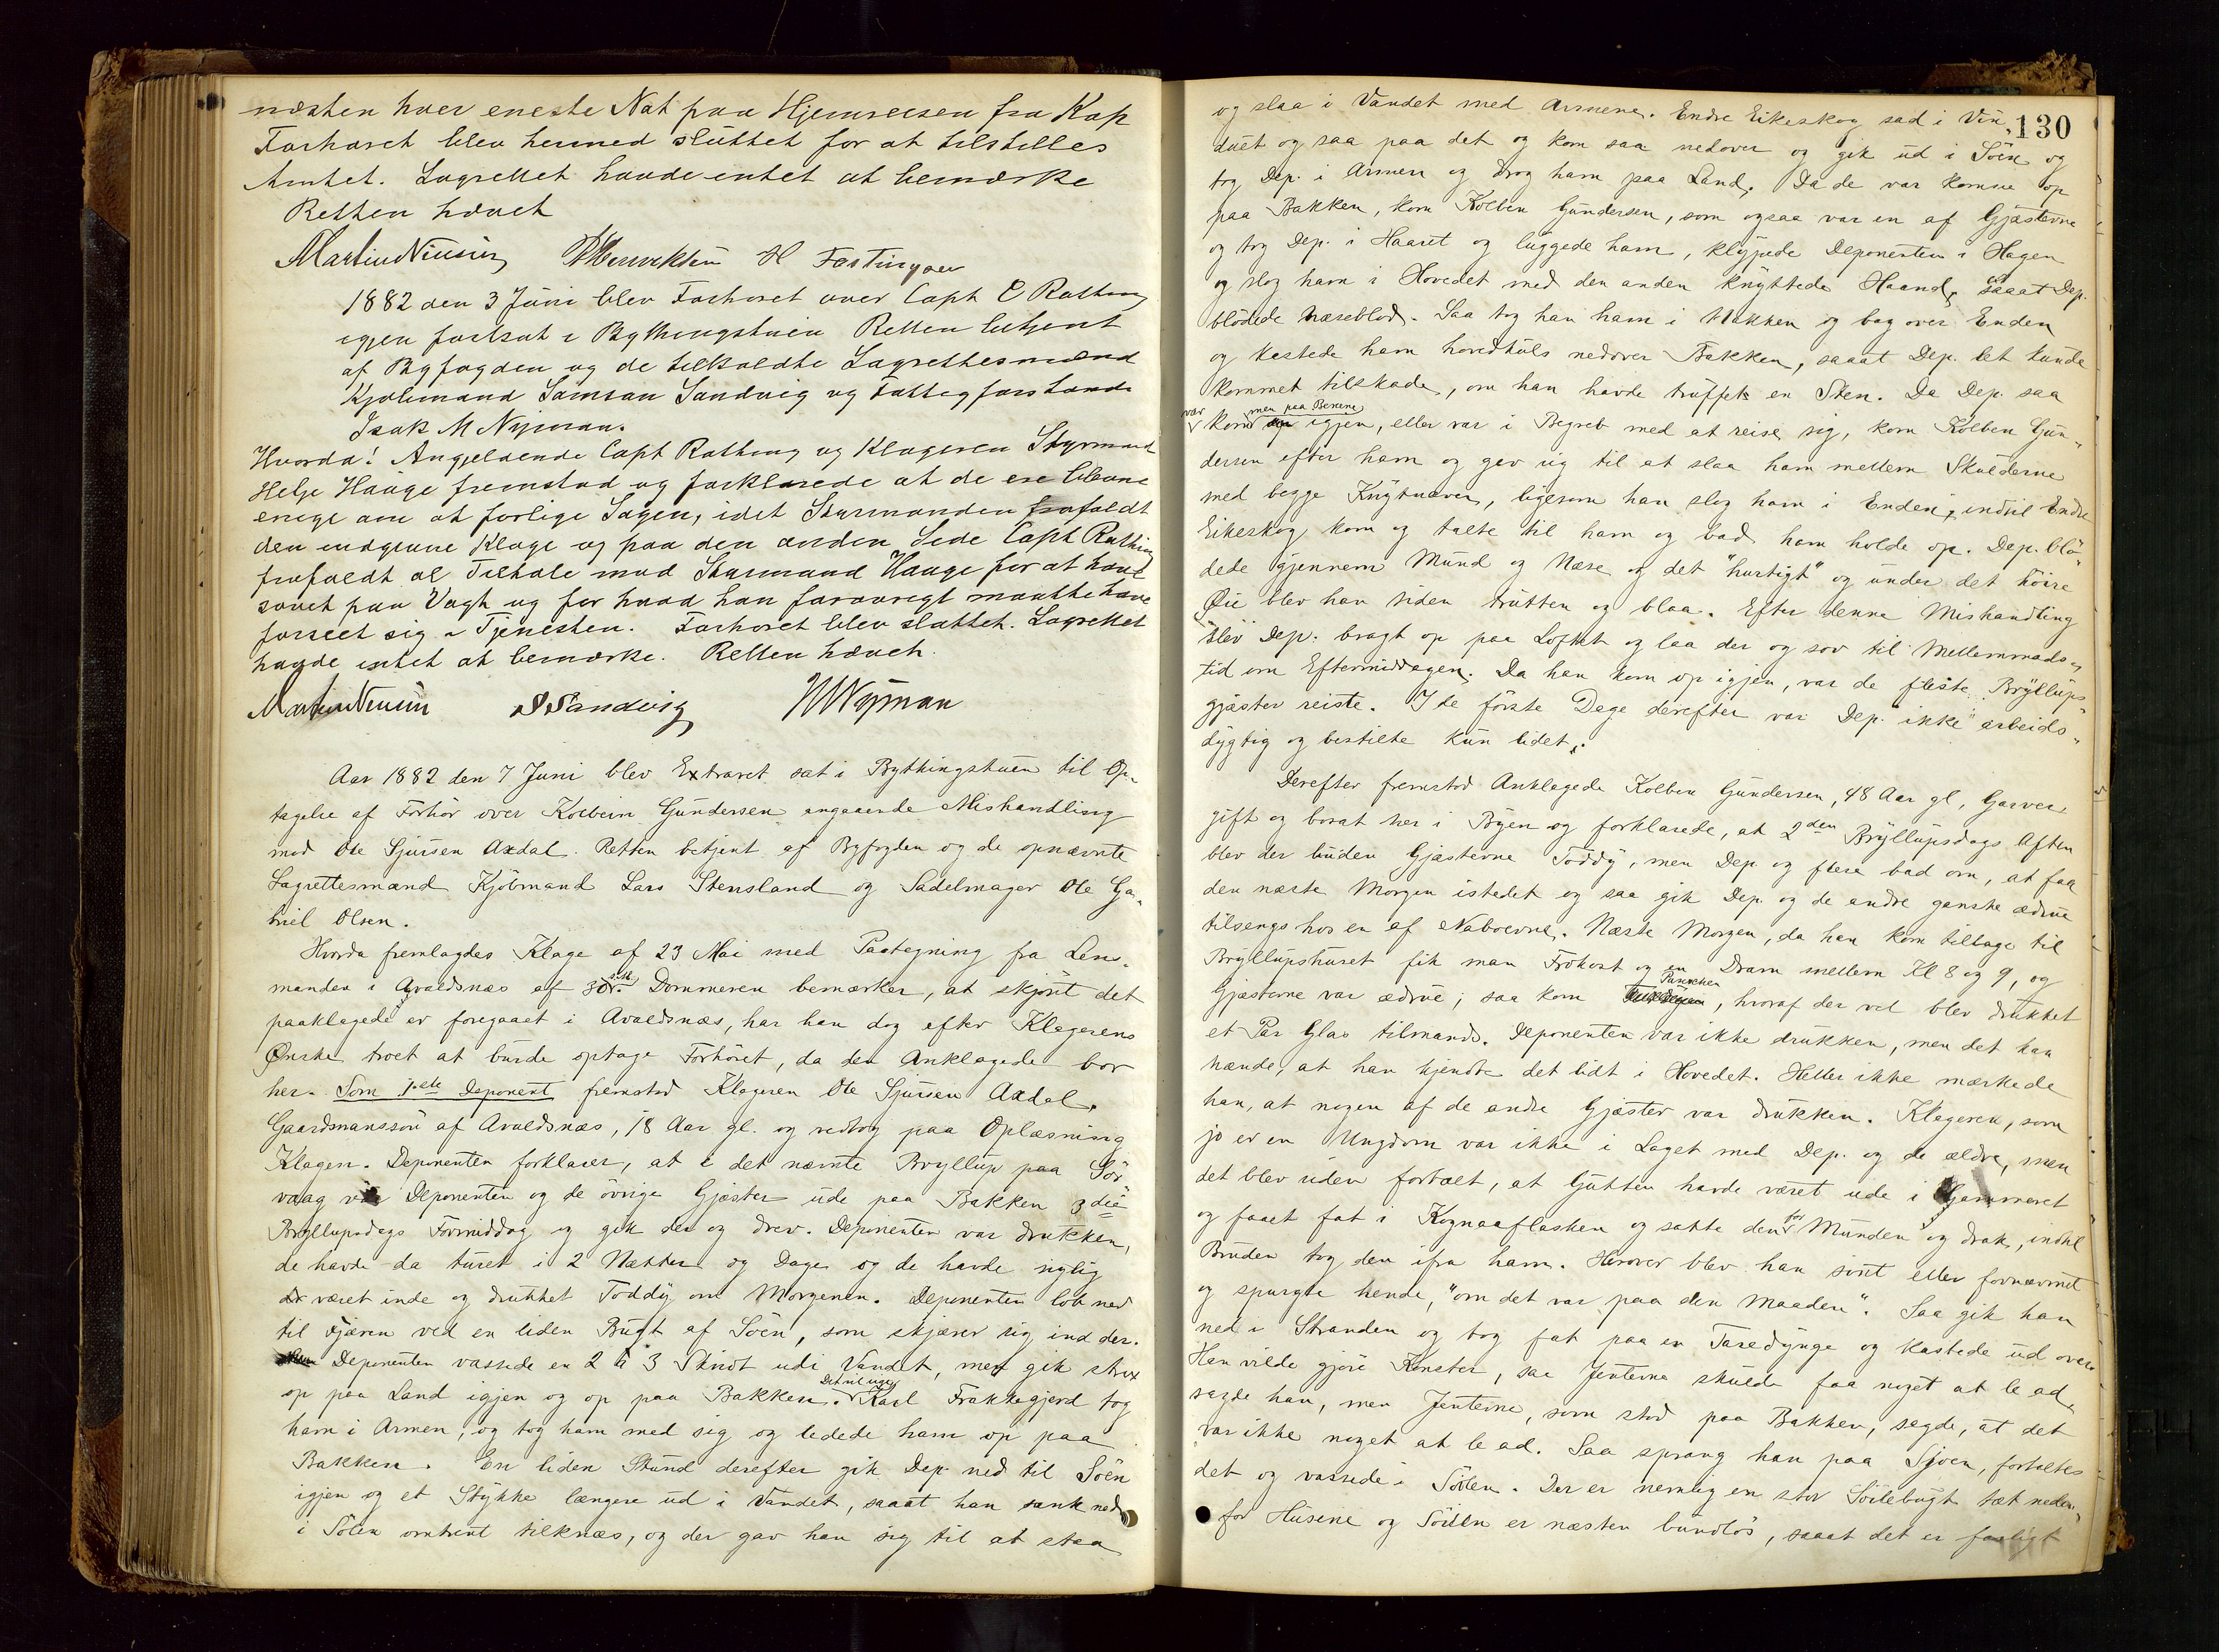 næsten hver eneste Nat paa Hjemreisen fra Kap
Forhøret blev hermed sluttet for at tilstilles
Amtet. Lagrettet havde intet at bemærke
Retten hævet
Martin Nissen H
1882 den 3 Juni blev Forhøret over Capt C Rathing
igjen fortsat i Bythingstuen Retten betjent
af Byfogden og de tilkaldte Lagrettesmænd
Kjøbmand Samson Sandvig og Fattigforstander
Isak M Nyman.
Hvorda! Angjeldende Capt Rathing og Klageren Styrmand
Helje Hauge fremstod og forklarede at de ere blevne
enige om at forlige Sagen, idet Styrmanden frafaldt
den indgivne Klage og paa den anden Side Capt Rathing
frafaldt al Tiltale mod Styrmand Hauge for at have
sovet paa Vagt og for hvad han forøvrigt maatte have
forseet sig i Tjenesten. Forhøret blev sluttet. Lagrettet
havde intet at bemærke. Retten hævet.
Martin Nissen S Sandvig I M Nyman
Aar 1882 den 7 Juni blev Extraret sat i Bythingstuen til Op-
tagelse af Forhör over Kolbein Gundersen angaaende Mishandling
mod Ole Sjursen Axdal. Retten betjent af Byfogden og de opnævnte
Lagrettesmænd Kjöbmand Lars Stensland og Sadelmager Ole Ga-
briel Olsen.
Hvorda fremlagdes Klage af 23 Mai med Paategning fra Lens-
manden i Avaldsnæs af 30 s.M. Dommeren bemærker, at skjönt det
paaklagede er foregaaet i Avaldsnæs, har han dog efter Klagerens
Ønske troet at burde optage Forhöret, da den Anklagede bor
her. Som 1ste Deponent fremstod Klageren Ole Sjursen Axdal,
Gaardmanssön af Avaldsnæs, 18 Aar gl. og vedtog paa Oplæsning
Klagen. Deponenten forklarer, at i det nævnte Bryllup paa Sör-
vaag var Deponenten og de övrige Gjæster ude paa Bakken 3die
Bryllupsdags Formiddag og gik der og drev. Deponenten var drukken,
de havde da turet i 2 Nætter og Dage og de havde nylig
været inde og drukket Toddy om Morgenen. Deponenten löb ned
til Fjæren ved en liden Bugt af Söen, som skjærer sig ind der.
Deponenten vassede en 2 à 3 Skridt udi Vandet, men gik strax
op paa Land igjen og op paa Bakken. Det vil sige Karl Frakkagjerd tog
ham i Armen, og tog ham med sig og ledede ham op paa
Bakken. En liden Stund derefter gik Dep. ned til Söen
igjen og et Stykke længere ud i Vandet, saaat han sank ned
i Sölen omtrent tilknæs, og der gav han sig til at staa
130
og slaa i Vandet med Armene. Endre Eikeskog sad i Vin-
duet og saa paa det og kom saa nedover og gik ud i Söen og
tog Dep. i Armen og drog ham paa Land. Da de var komne op
paa Bakken, kom Kolben Gundersen, som ogsaa var en af Gjæsterne
og tog Dep. i Haaret og luggede ham, klypede Deponenten i Hagen
og slog ham i Hovedet med den anden knyttede Haand, saaat Dep.
blödede Næseblod. Saa tog han ham i Nakken og bag over Enden
og kastede ham hovedkuls nedover Bakken, saaat Dep. let kunde
kommet tilskade, om han havde truffet en Sten. Da Dep. saa
var kommen paa Benene igjen, eller var i Begreb med at reise sig, kom Kolben Gun-
dersen efter ham og gav sig til at slaa ham mellem Skulderne
med begge Knytnæver, ligesom han slog ham i Enden, indtil Endre
Eikeskog kom og talte til ham og bad ham holde op. Dep. blö-
dede gjennem Mund og Næse og det "hurtigt" og under det höire
Øie blev han siden trutten og blaa. Efter denne Mishandling
blev Dep. bragt op paa Loftet og laa der og sov til Mellemmads-
tid om Eftermiddagen. Da han kom op igjen, var de fleste Bryllups-
gjæster reiste. I de förste Dage derefter var Dep. ikke arbeids-
dygtig og bestilte kun lidet.
Derefter fremstod Anklagede Kolben Gundersen, 48 Aar gl, Garver
gift og bosat her i Byen og forklarede, at 2den Bryllupsdags Aften
blev der buden Gjæsterne Toddy, men Dep og flere bad om, at faa
den næste Morgen istedet og saa gik Dep. og de andre ganske ædrue
tilsengs hos en af Naboerne. Næste Morgen, da han kom tilbage til
Bryllupshuset fik man Frokost og en Dram mellem Kl 8 og 9, og
Gjæsterne var ædrue; saa kom Punschen, hvoraf der vel blev drukket
et Par Glas tilmands. Deponenten var ikke drukken, men det kan
hænde, at han kjendte det lidt i Hovedet. Heller ikke mærkede
han, at nogen af de andre Gjæster var drukken. Klageren, som
jo er en Ungdom var ikke i Laget med Dep. og de ældre, men
det blev siden fortalt, at Gutten havde været ude i Kammeret
og faaet fat i Kognacflasken og satte den for Munden og drak, indtil
Bruden tog den ifra ham. Herover blev han sint eller fornærmet
og spurgte hende, "om det var paa den Maaden". Saa gik han
ned i Stranden og tog fat paa en Taredynge og kastede ud over
Han vilde gjöre Konster, saa Jenterne skulde faa noget at le ad,
sagde han, men Jenterne, som stod paa Bakken, sagde, at det
var ikke noget at le ad. Saa sprang han paa Sjoen, fortaltes
det og vassede i Sölen. Der er nemlig en stor Sölebugt tæt neden-
for Husene og Sölen er næsten bundlös, saaat det er farligt